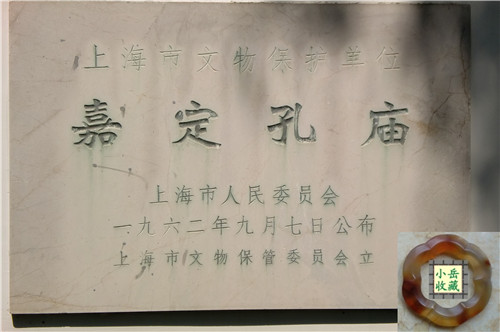 上海市文物保护单位
嘉定孔庙
上海市人民委员会
一九六二年九月七日公布
上海市文物保管委员会立
小岳
收藏